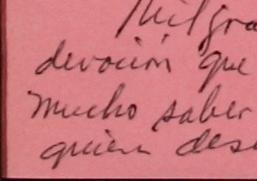 Milgra
devoción que
mucho saber
quien des